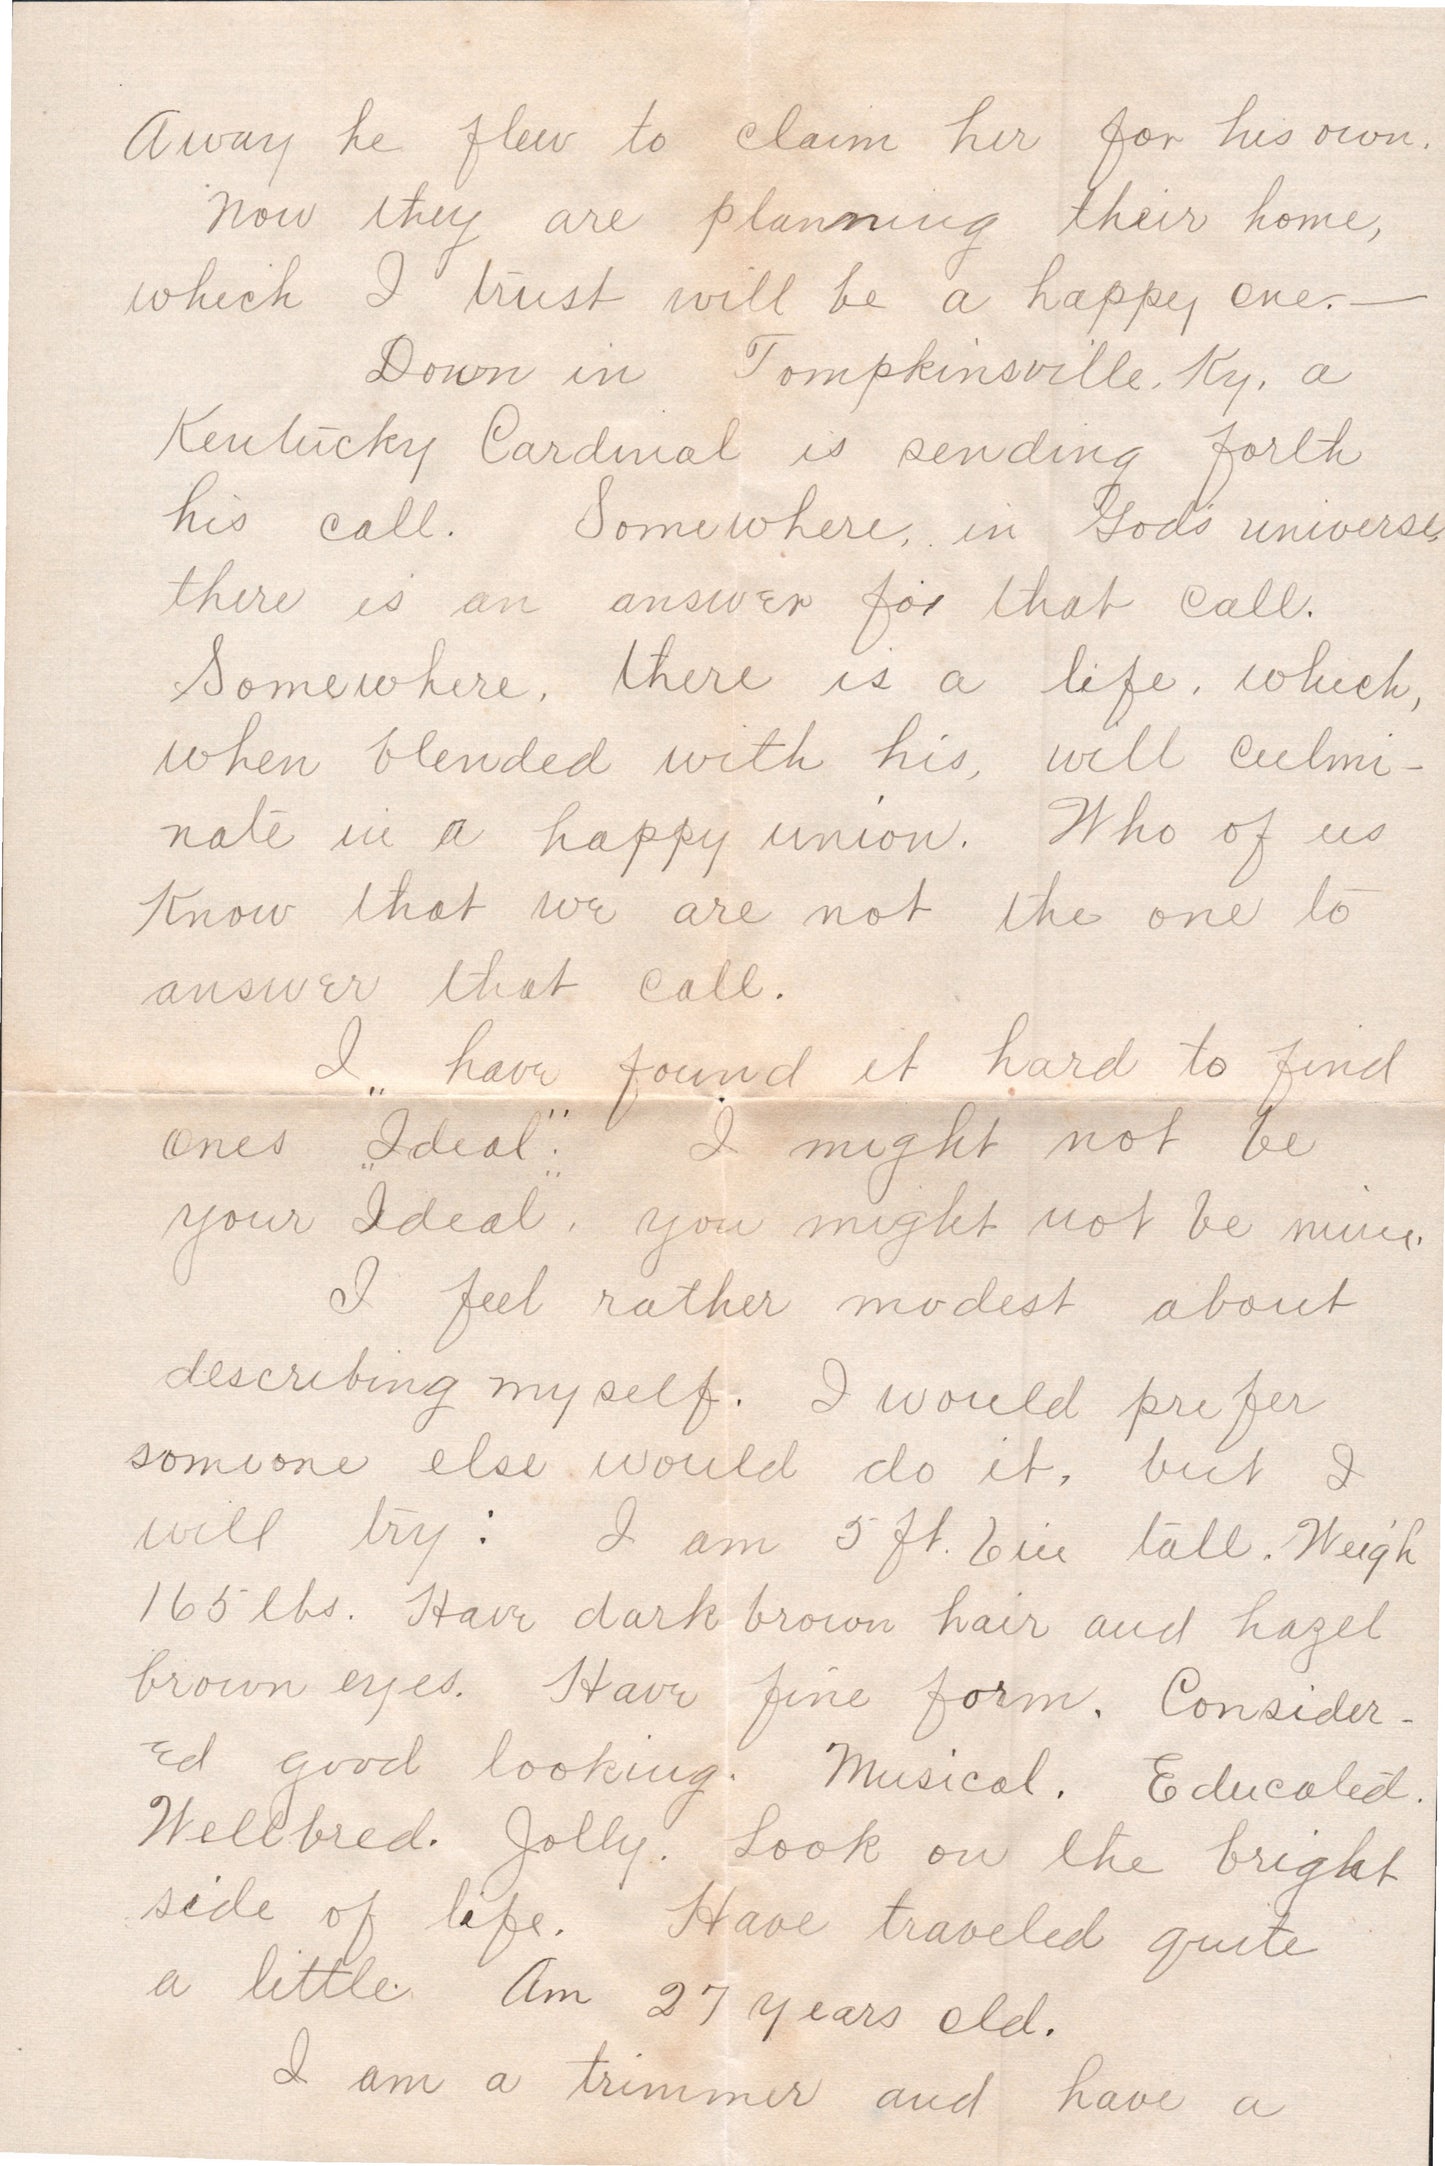 Away he flew to claim her for his own.
Now they are planning their home,
which I trust will be a happy one.—
Down in Tompkinsville, Ky, a
Kentucky Cardinal is sending forth
his call. Somewhere, in God's universe,
there is an answer for that call.
Somewhere, there is a life, which,
when blended with his, will culmi-
nate in a happy union. Who of us
know that we are not the one to
answer that call.
I have found it hard to find
ones "Ideal". I might not be
your "Ideal", you might not be mine.
I feel rather modest about
describing myself. I would prefer
someone else would do it, but I
will try: I am 5 ft. 6 in tall. Weigh
165 lbs. Have dark brown hair and hazel
brown eyes. Have fine form. Consider-
ed good looking. Musical. Educated.
Wellbred. Jolly. Look on the bright
side of life. Have traveled quite
a little. Am 27 years old.
I am a trimmer and have a